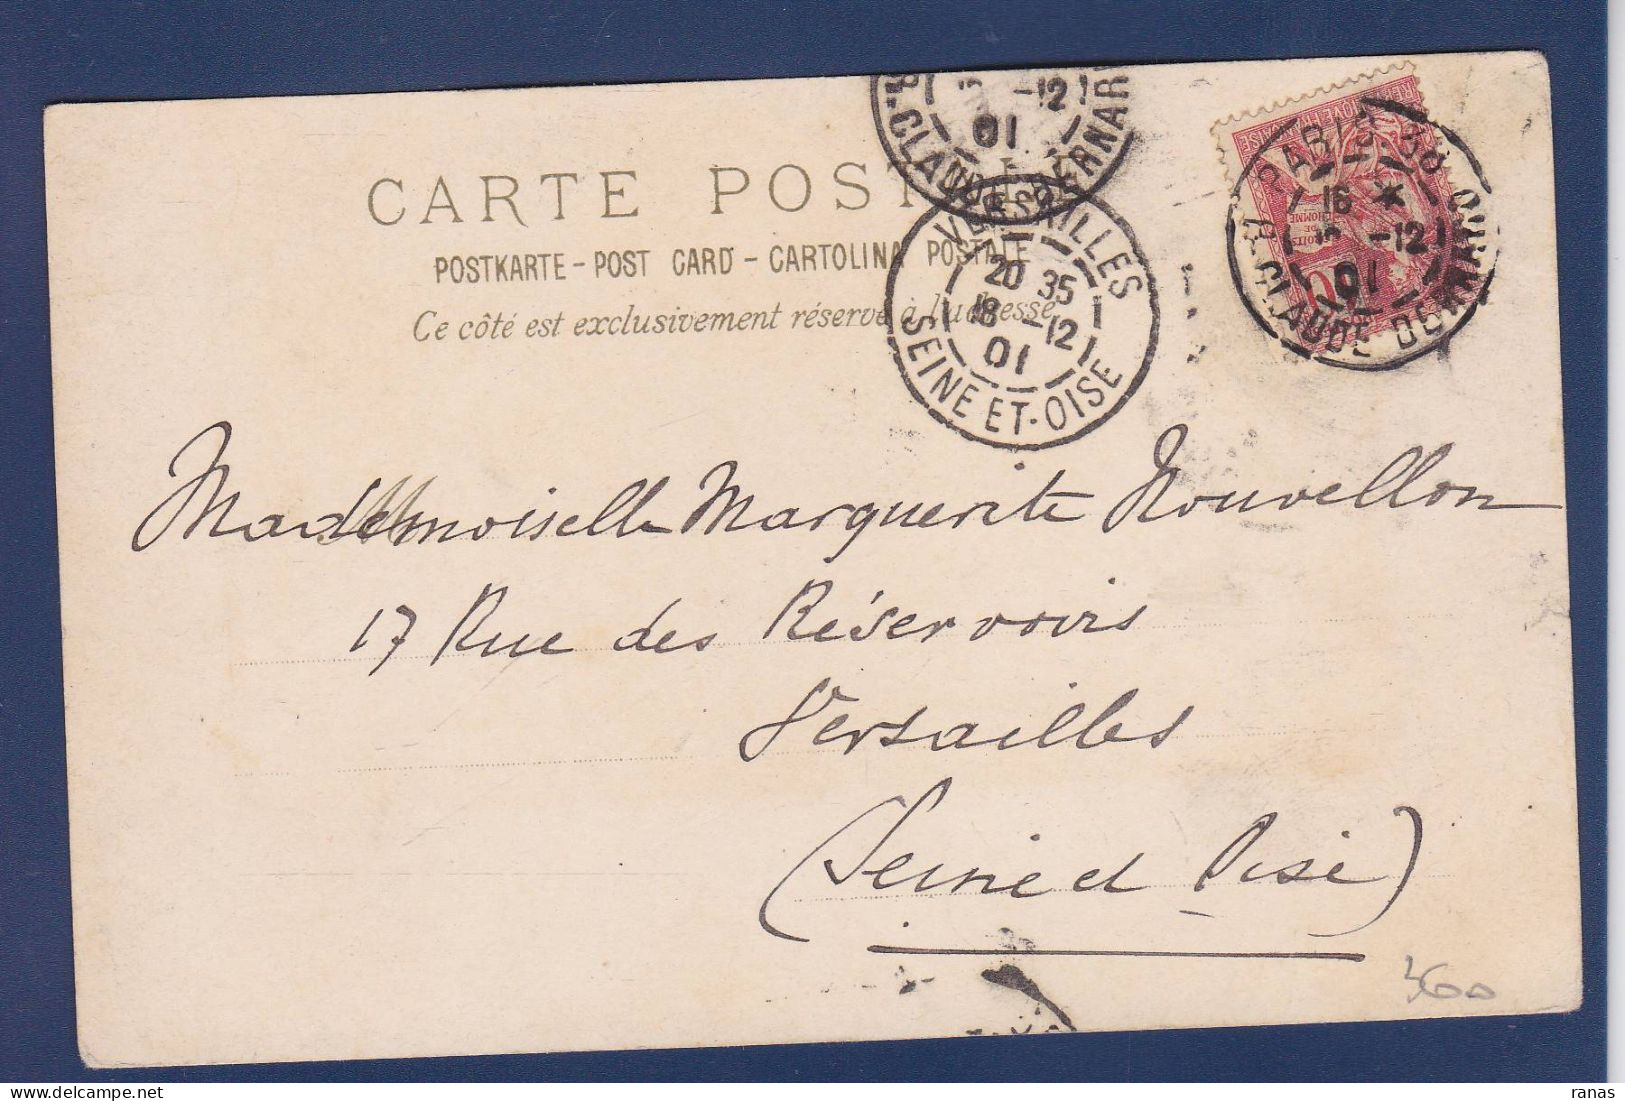 CARTE POSTALE
POSTKARTE - POST CARD - CARTOLINA POSTALE
Ce côté est exclusivement réservé à l'adresse
R. CLAUDE BERNARD
-12
01
VERSAILLES
20 35
18 -12
01
SEINE-ET-OISE
PARIS
16 *
-12
01
R. CLAUDE BERNARD
Mademoiselle Marguerite Nouvellon
17 Rue des Réservoirs
Versailles
(Seine et Oise)
360
ranas